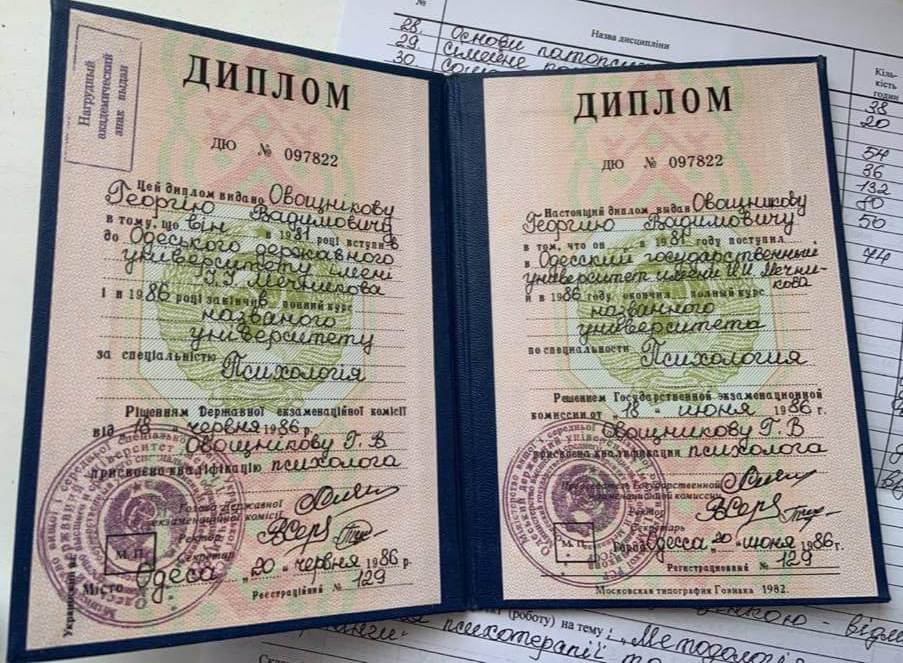 №
Назва дисципліни
Кіль-
кість
годин
28. Основи
29. сімейне
30
38
20
54
86
132
50
44
Нагрудный
академический
знак выдан
ДИПЛОМ
ДЮ № 097822
Цей диплом видано Овощникову
Георгию Вадимовичу
в тому, що він в 1981 році вступив
до Одеського державного
університету імені
І.І. Мечникова
і в 1986 році закінчив повний курс
названого
університету
за спеціальністю
Психологія
Рішенням Державної екзаменаційної комісії
від 18 " червня 1986 р.
Овощникову Г. В
присвоєна кваліфікацію психолога
Голова Державної
екзаменаційної комісії
Ректор
Секретар
М. П.
Місто Одеса „20 " червня 1986 р.
Реєстраційний № 129
ДИПЛОМ
ДЮ № 097822
Настоящий диплом выдан Овощникову
Георгию Вадимовичу
в том, что он в 1981 году поступил
в Одесский государственный
университет имени И.И. Мечни-
кова
и в 1986 году окончил полный курс
названного
университета
по специальности Психология
Решением Государственной экзаменационной
комиссии от „ 18 " июня 1986 г.
Овощникову Г. В
присвоена квалификация психолога
Председатель Государственной
экзаменационной комиссии
Ректор
Секретарь
М. П.
Город Одесса „20 " июня 1986 г.
Регистрационный № 129
Московская типография Гознака 1982.
(роботу) на тему: „Методологія
психотерапії